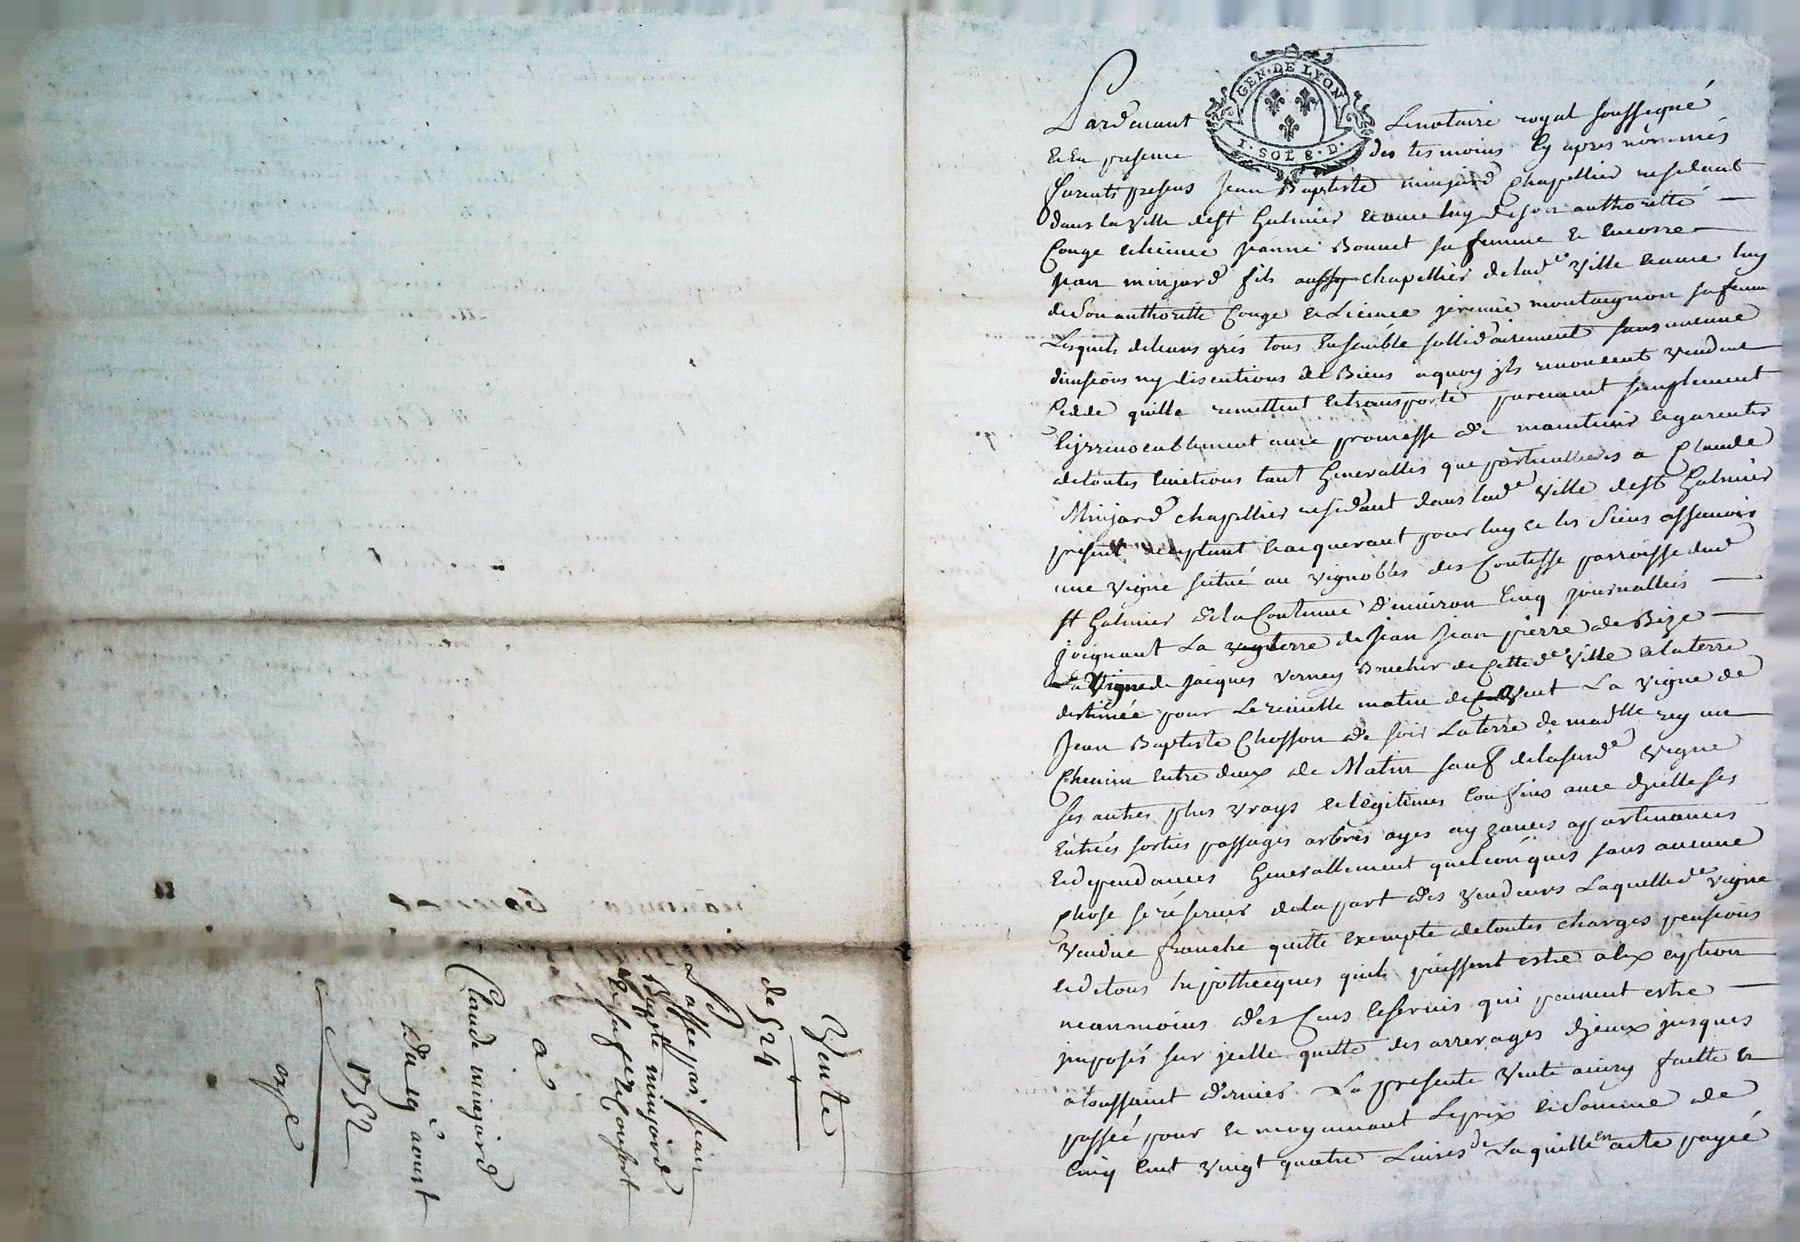 GEN · DE LYON
1 · SOL 8 · D ·
Pardevant Le notaire royal soussigné
et En presence des tesmoins Cy apres nommés
furents presens Jean Baptiste minjard chapellier residant
dans la Ville de st Galmier et avec luy de son authorité
Conge et licence Jeanne Bonnet sa femme et encorre
jean minjard fils aussy chapellier de lad.e Ville et avec luy
de Son authoritte Conge et Licence montaignon sa femme
Lesquels de leurs grés tous Ensemble sollidairement sans aucune
divisions ny discutions de Biens a quoy jls renoncent Vendent
Cedde quitte remettent et transporte purement simplement
Et jrrevocablement avec promesse de maintenir et garentir
de toutes Evictions tant Generalles que particullieres a Claude
Minjard chapellier residant dans lad.e Ville de st Galmier
present acceptant et acquerant pour luy et les Siens assavoir
une Vigne scitué au Vignobles des Contesse parroisse dud
st Galmier de la Contenue d'environ Cinq journallées
joignant La terre de jean jean pierre de Bize
La Vigne de jacques Verney Boucher de Cette d.e Ville et la terre
destinée pour de matin de Vent La Vigne de
Jean Baptiste Chosson de soir La terre de mad.lle rey un
Chemin entre deux de Matin sauf de la susd.e Vigne
ses autres plus Vrays et legitimes Confins avec d'jcelle ses
Entrées sorties passages arbres ayes ayzances appartenances
et dependances Generallement quelconques sans aucune
Chose se réserver de la part des Vendeurs Laquelle d.e Vigne
Vendue franche quitte exempte de toutes charges pensions
et de tous hipothecques quels puissent estre a l'exception
neanmoins des Cens et servis qui peuvent estre
jmposés sur jcelle quitte des arrerages d'jceux jusques
a toussaint dernier La presente Vente ainsy faitte et
passée pour et moyennant Le prix et Somme de
Cinq Cent Vingt quatre Livres de Laquelle en acte payée
Vente
de 524
passé par jean
Baptiste minjard
et sa femme Consort
a
Claude minjard
du 19 aoust
1752